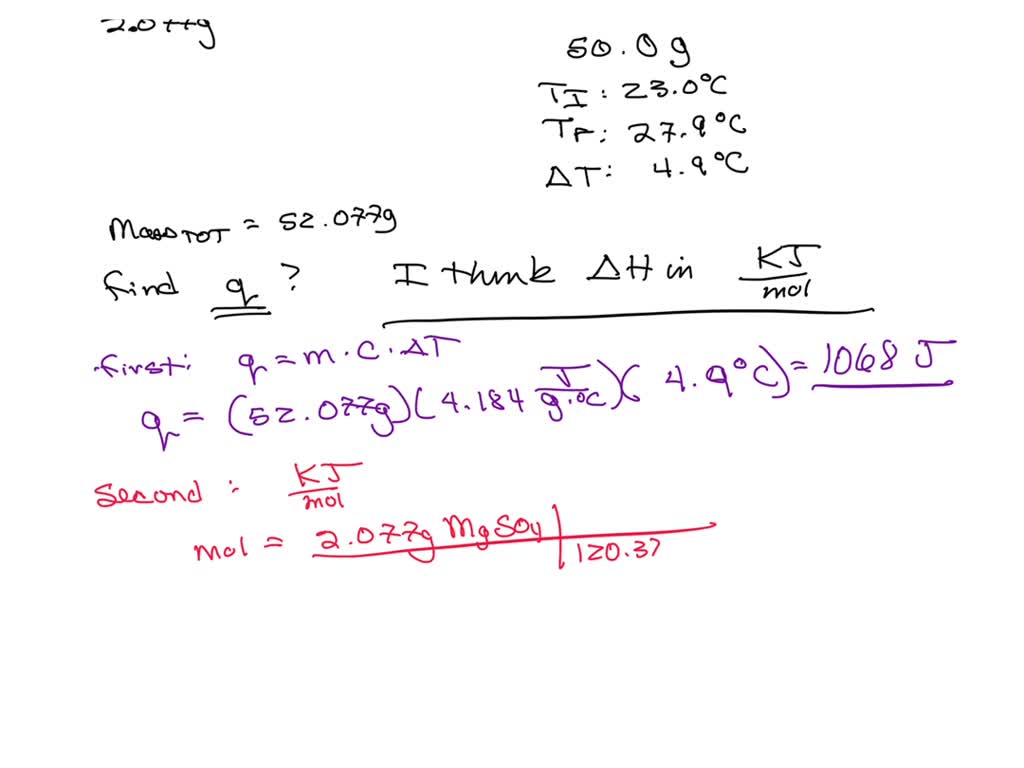 2.077g
50.0g
TI: 23.0°C
TF: 27.9°C
ΔT: 4.9°C
MassTOT = 52.077g
find q? I think ΔH in KJ/mol
first: q = m·C·ΔT
q = (52.077g)(4.184 J/g·°C)(4.9°C) = 1068 J
Second: KJ/mol
mol = 2.077g MgSO4 | 120.37